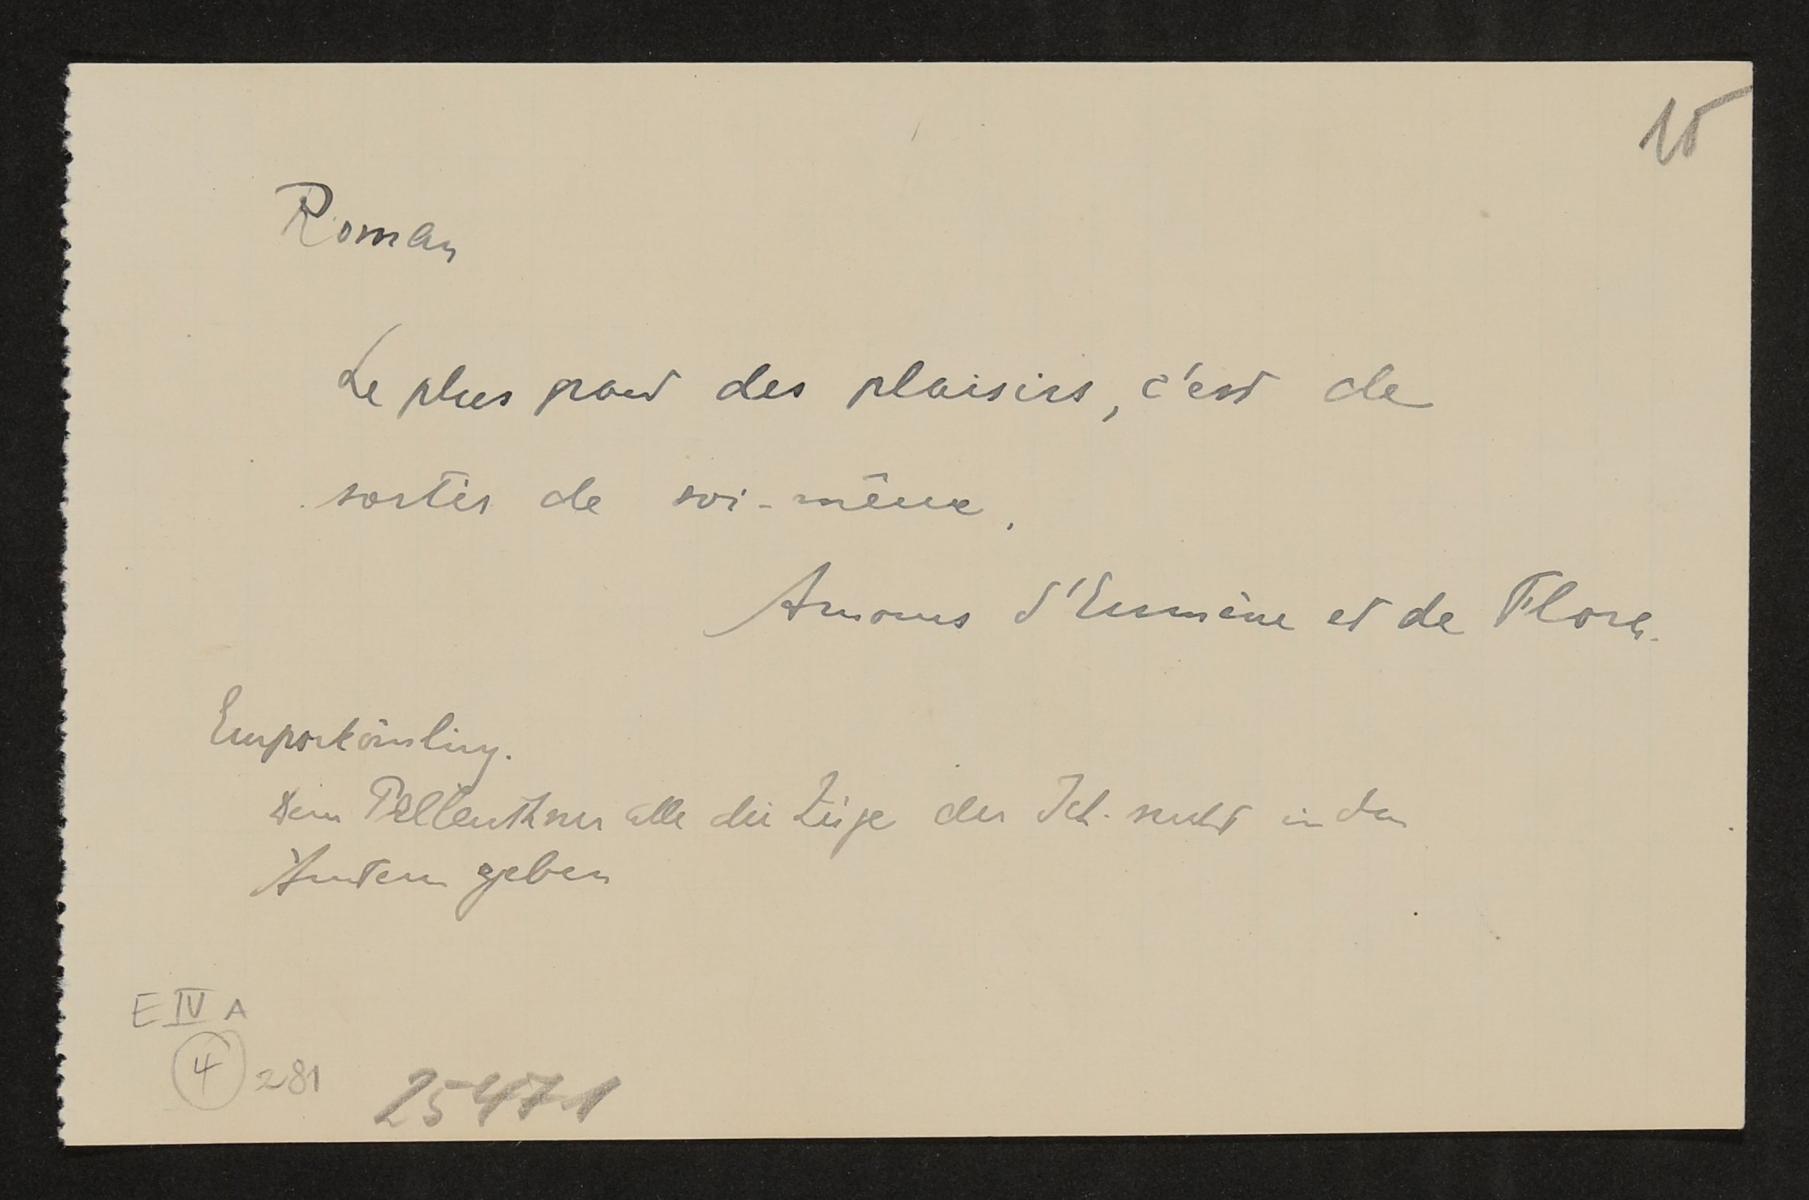 15
Roman
Le plus grand des plaisirs, c'est de
sortir de soi-même.
Amours d'Eumène et de Flora.
Emporkömling.
Dem alle die Züge der Ich-sucht in den
Andern geben
E IV A
4 281
25471